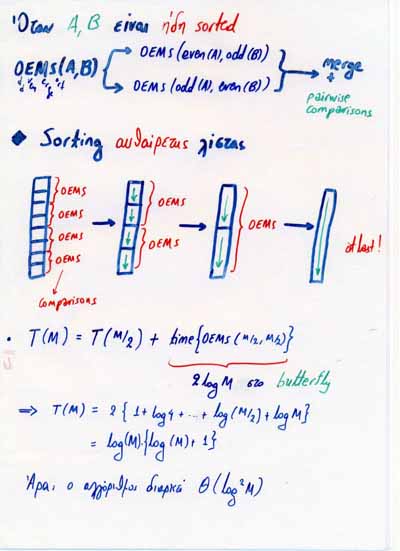 Όταν A, B είναι ήδη sorted
OEMS(A,B)
OEMS(even(A), odd(B))
OEMS(odd(A), even(B))
merge
+
pairwise
comparisons
Sorting αυθαίρετης λίστας
OEMS
OEMS
OEMS
OEMS
comparisons
OEMS
OEMS
OEMS
at last!
T(M) = T(M/2) + time{OEMS(M/2, M/2)}
2logM στο butterfly
⇒ T(M) = 2 {1+log4 + ... + log(M/2) + logM}
= log(M).{log(M)+1}
Άρα, ο αλγόριθμος διαρκεί Θ(log²M)